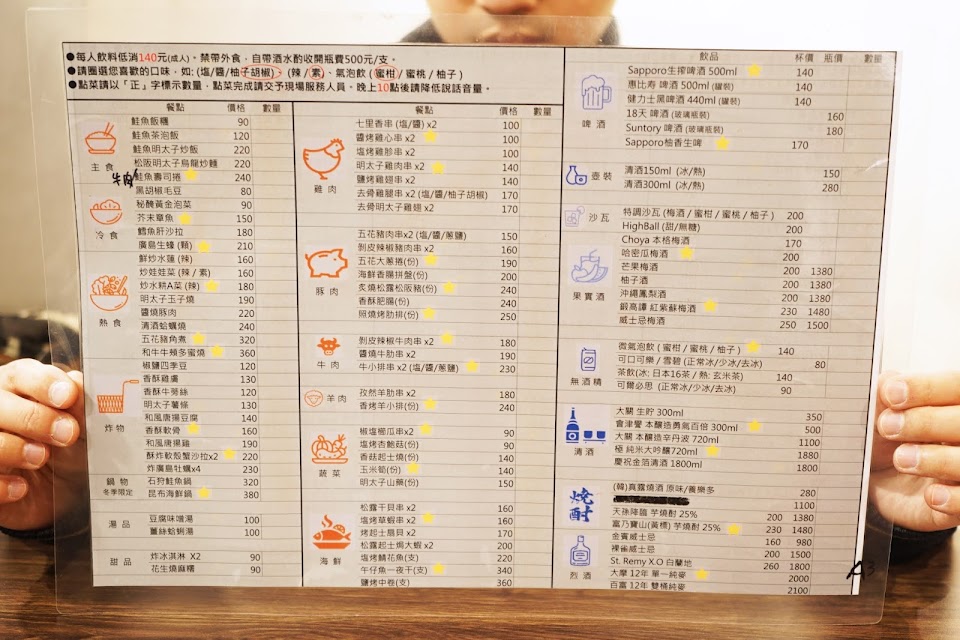 ●每人飲料低消140元(成人)。禁帶外食，自帶酒水酌收開瓶費500元/支。
●請圈選您喜歡的口味，如:(塩/醬/柚子胡椒)、(辣/素)、氣泡飲(蜜柑/蜜桃/柚子)
●點菜請以「正」字標示數量，點菜完成請交予現場服務人員。晚上10點後請降低說話音量。
餐點 價格 數量
主食
鮭魚飯糰 90
鮭魚茶泡飯 120
鮭魚明太子炒飯 220
松阪明太子烏龍炒麵 220
牛肉
鮭魚壽司捲 240
冷食
黑胡椒毛豆 80
秘醃黃金泡菜 90
芥末章魚 150
鱈魚肝沙拉 180
廣島生蠔 (顆) 210
熱食
鮮炒水蓮 (辣) 160
炒娃娃菜 (辣/素) 160
炒水耕A菜 (辣) 180
明太子玉子燒 190
醬燒豚肉 220
清酒蛤蠣燒 240
五花豬角煮 320
和牛牛頰多蜜燒 360
炸物
椒鹽四季豆 120
香酥雞膚 130
香酥牛蒡絲 120
明太子薯條 130
和風唐揚豆腐 140
香酥軟骨 160
和風唐揚雞 190
酥炸軟殼蟹沙拉x2 220
炸廣島牡蠣x4 230
鍋物
冬季限定
石狩鮭魚鍋 320
昆布海鮮鍋 380
湯品
豆腐味噌湯 100
薑絲蛤蜊湯 100
甜品
炸冰淇淋 X2 90
花生燒麻糬 90
餐點 價格 數量
雞肉
七里香串 (塩/醬) 100
醬烤雞心串 x2 100
塩烤雞胗串 x2 100
明太子雞肉串 x2 140
鹽烤雞翅串 x2 140
去骨雞腿串 x2 (塩/醬/柚子胡椒) 170
去骨明太子雞翅 x2 170
豚肉
五花豬肉串x2 (塩/醬/蔥鹽) 150
剝皮辣椒豬肉串 x2 160
五花大蔥捲(份) 150
海鮮香腸拼盤(份) 200
炙燒松露松阪豬(份) 240
香酥肥腸(份) 240
照燒烤肋排(份) 250
牛肉
剝皮辣椒牛肉串 x2 180
醬燒牛肋串 x2 190
牛小排串 x2 (塩/醬/蔥鹽) 230
羊肉
孜然羊肋串 x2 180
香烤羊小排(份) 240
蔬菜
椒塩櫛瓜串 x2 90
塩烤杏鮑菇(份) 90
香菇起士燒(份) 120
玉米筍(份) 120
明太子山藥(份) 150
海鮮
松露干貝串 x2 160
塩烤草蝦串 x2 160
烤起士扇貝 x2 170
松露起士焗大蝦 x2 200
塩烤鯖花魚(支) 220
午仔魚一夜干(支) 340
鹽烤中卷(支) 360
飲品 杯價 瓶價 數量
啤酒
Sapporo生搾啤酒 500ml 140
惠比寿 啤酒 500ml (罐裝) 140
健力士黑啤酒 440ml (罐裝) 140
18天 啤酒 (玻璃瓶裝) 160
Suntory 啤酒 (玻璃瓶裝) 180
Sapporo柚香生啤 170
壺裝
清酒150ml (冰/熱) 150
清酒300ml (冰/熱) 280
沙瓦
特調沙瓦 (梅酒/蜜柑/蜜桃/柚子) 200
HighBall (甜/無糖) 200
果實酒
Choya 本格梅酒 170
哈密瓜梅酒 200
芒果梅酒 200 1380
柚子酒 200 1380
沖繩鳳梨酒 200 1380
鍛高譚 紅紫蘇梅酒 230 1480
威士忌梅酒 250 1500
無酒精
微氣泡飲 (蜜柑/蜜桃/柚子) 140
可口可樂/雪碧 (正常冰/少冰/去冰) 80
茶飲(冰: 日本16茶/熱: 玄米茶) 140
可爾必思 (正常冰/少冰/去冰) 90
清酒
大關 生貯 300ml 350
會津譽 本釀造勇氣百倍 300ml 500
大關 本釀造辛丹波 720ml 1100
極 純米大吟釀720ml 1880
慶祝金箔清酒 1800ml 1800
焼酎
(韓)真露燒酒 原味/養樂多 280
1100
天孫降臨 芋燒酎 25% 200 1380
富乃寶山(黃標) 芋燒酎 25% 230 1480
烈酒
金賓威士忌 160 980
裸雀威士忌 200 1500
St. Remy X.O 白蘭地 260 1800
大摩 12年 單一純麥 2000
百富 12年 雙桶純麥 2100